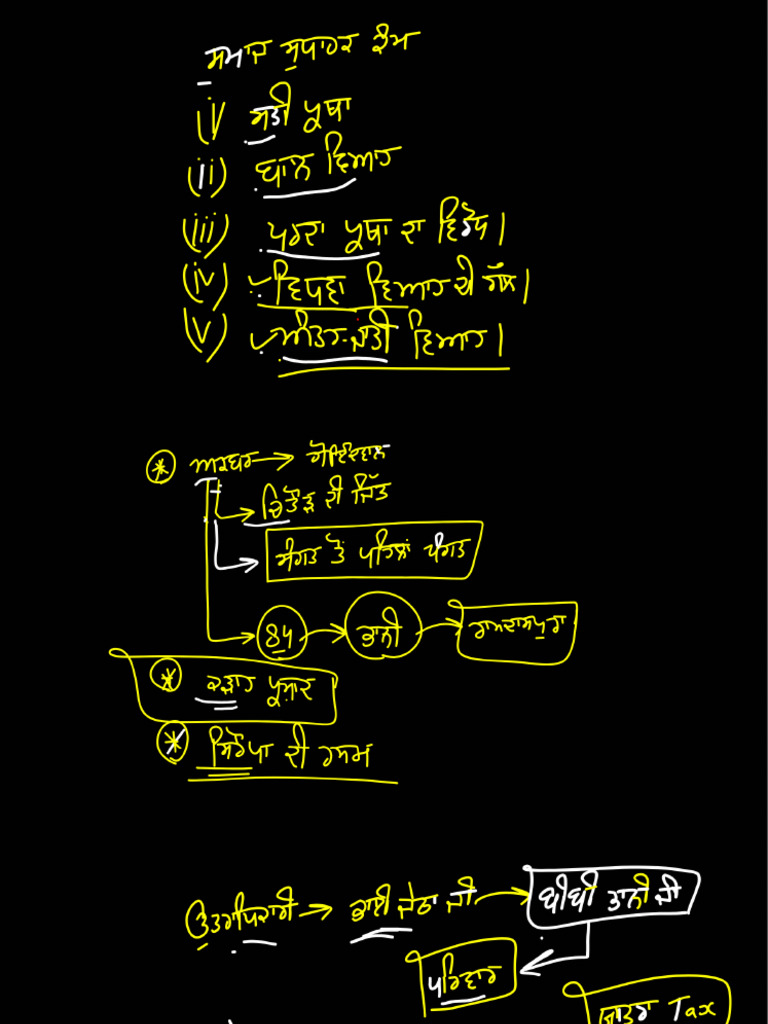 ਸਮਾਜ ਸੁਧਾਰਕ ਕੰਮ
(i) ਸਤੀ ਪ੍ਰਥਾ
(ii) ਬਾਲ ਵਿਆਹ
(iii) ਪਰਦਾ ਪ੍ਰਥਾ ਦਾ ਵਿਰੋਧ।
(iv) ਵਿਧਵਾ ਵਿਆਹ ਦੀ ਗੱਲ।
(v) ਅੰਤਰ-ਜਾਤੀ ਵਿਆਹ।
* ਅਕਬਰ → ਗੋਇੰਦਵਾਲ
→ ਚਿਤੌੜ ਦੀ ਜਿੱਤ
→ ਸੰਗਤ ਤੋਂ ਪਹਿਲਾਂ ਪੰਗਤ
→ 84 → ਭਾਨੀ → ਰਾਮਦਾਸਪੁਰਾ
* ਕੜਾਹ ਪ੍ਰਸ਼ਾਦ
* ਸਿਰੋਪਾ ਦੀ ਰਸਮ
ਉਤਰਾਧਿਕਾਰੀ → ਭਾਈ ਜੇਠਾ ਜੀ → ਬੀਬੀ ਭਾਨੀ ਜੀ
ਪਰਿਵਾਰ
ਯਾਤਰਾ Tax